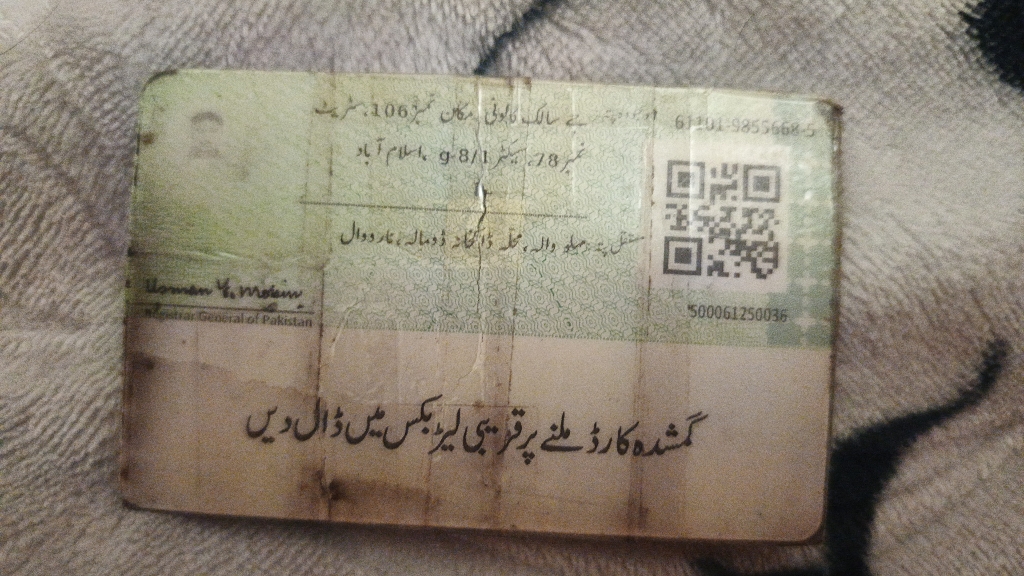 61101-9855668-5
سالک کالونی، مکان نمبر 106، سٹریٹ
نمبر 78، سیکٹر g-8/1، اسلام آباد
مستقل پتہ: وال، محلہ ڈاکخانہ ڈومالہ، نارووال
Usman Y. Mobin
Registrar General of Pakistan
500061250036
گمشدہ کارڈ ملنے پر قریبی لیٹر بکس میں ڈال دیں